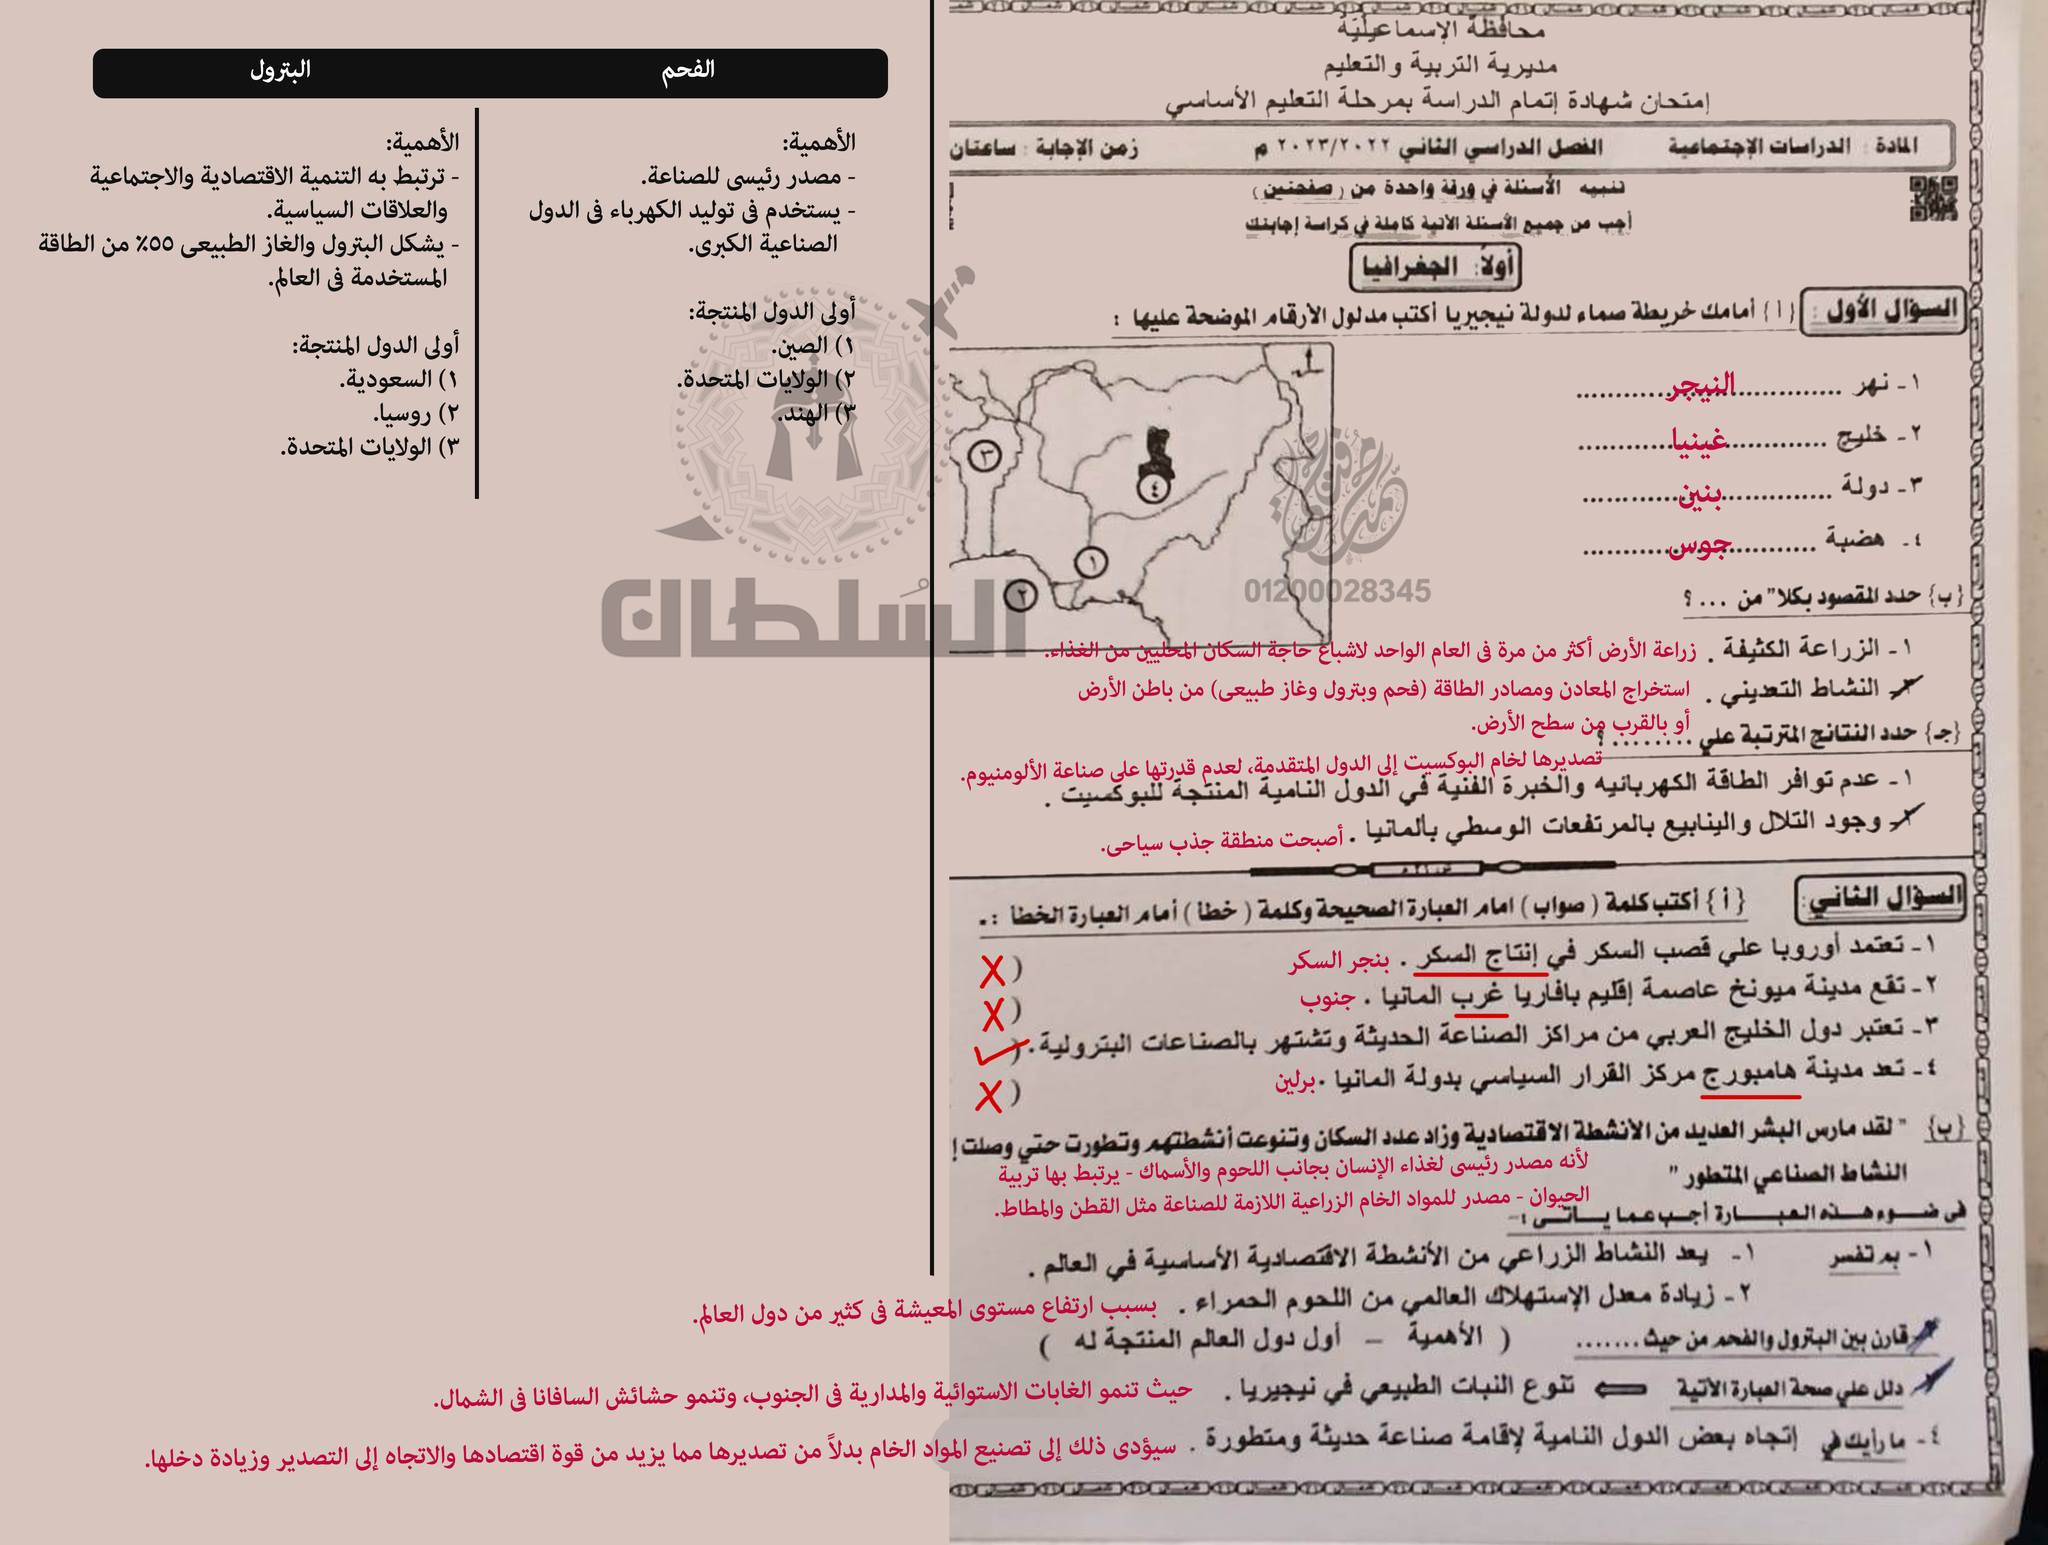 محافظة الإسماعيلية
مديرية التربية والتعليم
إمتحان شهادة إتمام الدراسة بمرحلة التعليم الأساسي
المادة : الدراسات الإجتماعية الفصل الدراسي الثاني ٢٠٢٣/٢٠٢٢ م زمن الإجابة : ساعتان
تنبيه الأسئلة في ورقة واحدة من ( صفحتين )
أجب من جميع الأسئلة الآتية كاملة في كراسة إجابتك
أولاً: الجغرافيا
السؤال الأول : { أ } أمامك خريطة صماء لدولة نيجيريا أكتب مدلول الأرقام الموضحة عليها :
١- نهر .......النيجر.......
٢- خليج .......غينيا.......
٣- دولة .......بنين.......
٤- هضبة .......جوس.......
٣
٤
١
٢
01200028345
السلطان
{ب} حدد المقصود بكلا" من ... ؟
١- الزراعة الكثيفة . زراعة الأرض أكثر من مرة فى العام الواحد لاشباع حاجة السكان المحليين من الغذاء.
٢- النشاط التعديني . استخراج المعادن ومصادر الطاقة (فحم وبترول وغاز طبيعى) من باطن الأرض
أو بالقرب من سطح الأرض.
{جـ} حدد النتائج المترتبة علي ........ ؟
تصديرها لخام البوكسيت إلى الدول المتقدمة، لعدم قدرتها على صناعة الألومنيوم.
١- عدم توافر الطاقة الكهربائيه والخبرة الفنية في الدول النامية المنتجة للبوكسيت .
٢- وجود التلال والينابيع بالمرتفعات الوسطي بألمانيا . أصبحت منطقة جذب سياحى.
السؤال الثاني : { أ } أكتب كلمة ( صواب ) امام العبارة الصحيحة وكلمة ( خطأ ) أمام العبارة الخطأ :-
١- تعتمد أوروبا علي قصب السكر في إنتاج السكر . بنجر السكر ( X
٢- تقع مدينة ميونخ عاصمة إقليم بافاريا غرب المانيا . جنوب ( X
٣- تعتبر دول الخليج العربي من مراكز الصناعة الحديثة وتشتهر بالصناعات البترولية . ( ✓
٤- تعد مدينة هامبورج مركز القرار السياسي بدولة المانيا . برلين ( X
{ب} " لقد مارس البشر العديد من الأنشطة الاقتصادية وزاد عدد السكان وتنوعت أنشطتهم وتطورت حتي وصلت إ
النشاط الصناعي المتطور "
لأنه مصدر رئيسى لغذاء الإنسان بجانب اللحوم والأسماك - يرتبط بها تربية
الحيوان - مصدر للمواد الخام الزراعية اللازمة للصناعة مثل القطن والمطاط.
فى ضوء هذه العبارة أجب عما يأتى :-
١- بم تفسر ١- يعد النشاط الزراعي من الأنشطة الاقتصادية الأساسية في العالم .
٢- زيادة معدل الإستهلاك العالمي من اللحوم الحمراء . بسبب ارتفاع مستوى المعيشة فى كثير من دول العالم.
قارن بين البترول والفحم من حيث ....... ( الأهمية – أول دول العالم المنتجة له )
دلل علي صحة العبارة الآتية ⇐ تنوع النبات الطبيعي في نيجيريا . حيث تنمو الغابات الاستوائية والمدارية فى الجنوب، وتنمو حشائش السافانا فى الشمال.
٤- ما رأيك في إتجاه بعض الدول النامية لإقامة صناعة حديثة ومتطورة . سيؤدى ذلك إلى تصنيع المواد الخام بدلاً من تصديرها مما يزيد من قوة اقتصادها والاتجاه إلى التصدير وزيادة دخلها.
الفحم
الأهمية:
- مصدر رئيسى للصناعة.
- يستخدم فى توليد الكهرباء فى الدول
الصناعية الكبرى.
أولى الدول المنتجة:
١) الصين.
٢) الولايات المتحدة.
٣) الهند.
البترول
الأهمية:
- ترتبط به التنمية الاقتصادية والاجتماعية
والعلاقات السياسية.
- يشكل البترول والغاز الطبيعى ٥٥٪ من الطاقة
المستخدمة فى العالم.
أولى الدول المنتجة:
١) السعودية.
٢) روسيا.
٣) الولايات المتحدة.